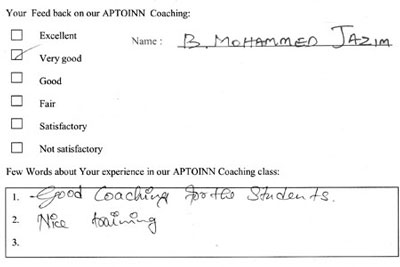 Your Feed back on our APTOINN Coaching:
Excellent
Name : B. MOHAMMED JAZIM
Very good
Good
Fair
Satisfactory
Not satisfactory
Few Words about Your experience in our APTOINN Coaching class:
1. Good Coaching for the Students.
2. Nice training
3.